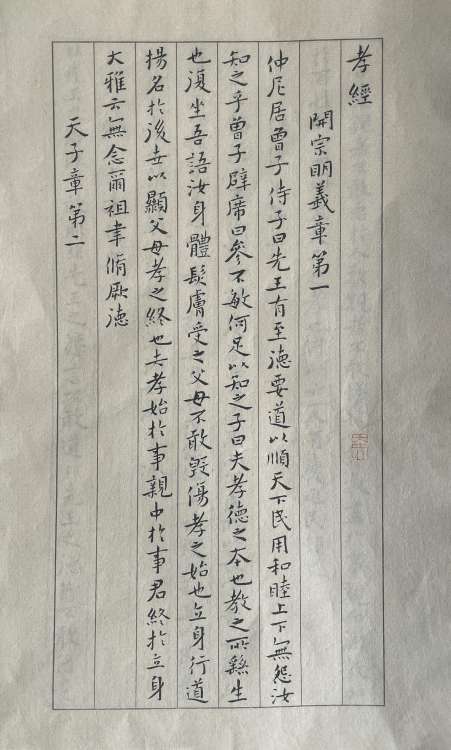 孝經
開宗明義章第一
仲尼居曾子侍子曰先王有至德要道以順天下民用和睦上下無怨汝
知之乎曾子辟席曰參不敏何足以知之子曰夫孝德之本也教之所繇生
也復坐吾語汝身體髮膚受之父母不敢毀傷孝之始也立身行道
揚名於後世以顯父母孝之終也夫孝始於事親中於事君終於立身
大雅云無念爾祖聿脩厥德
天子章第二